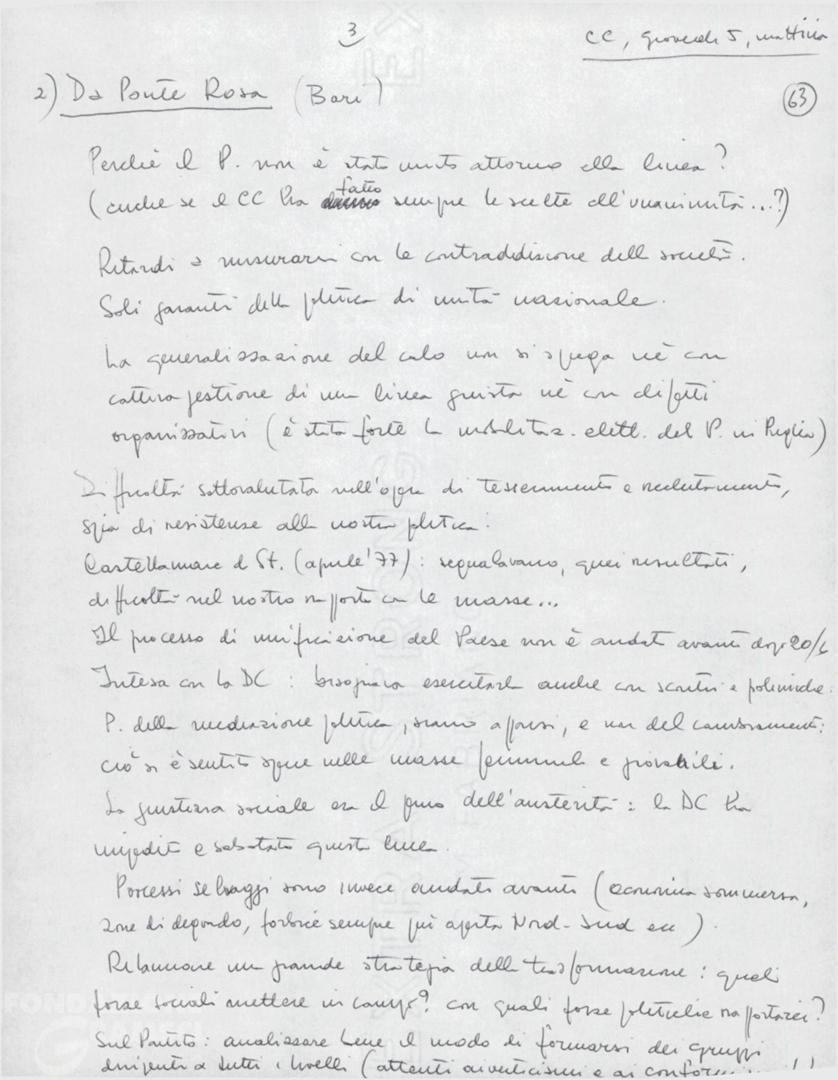 3
CC, giovedì 5, mattina
63
2) Da Ponte Rosa (Bari)
Perchè il P. non è stato unito attorno alla linea?
(anche se il CC ha fatto sempre le scelte all'unanimità...?)
Ritardi a misurarsi con le contraddizione della società.
Soli garanti della politica di unità nazionale.
La generalizzazione del calo non si spiega nè con
cattiva gestione di una linea giusta nè con difetti
organizzativi (è stata forte la mobilitaz. elett. del P. in Puglia)
Difficoltà sottovalutata nell'opera di tesseramento e reclutamento,
spia di resistenze alla nostra politica.
Castellamare d St. (aprile '77): segnalavano, quei risultati,
difficoltà nel nostro rapporto con le masse...
Il processo di unificazione del Paese non è andato avanti dopo 20/6
Intesa con la DC: bisognava esercitarla anche con scontri e polemiche.
P. della mediazione politica, siamo apparsi, e non del cambiamento:
ciò si è sentito specie nelle masse femminili e giovanili.
La giustizia sociale era il perno dell'austerità: la DC ha
impedito e sabotato questa linea.
Processi selvaggi sono invece andati avanti (economia sommersa,
zone di degrado, forbice sempre più aperta Nord-Sud ecc).
Rilanciare una grande strategia della trasformazione: quali
forze sociali mettere in campo? con quali forze politiche rapportarci?
Sul Partito: analizzare bene il modo di formarsi dei gruppi
dirigenti a tutti i livelli (attenti ai verticismi e ai
FONDAZIONE
EXTRA STRONG